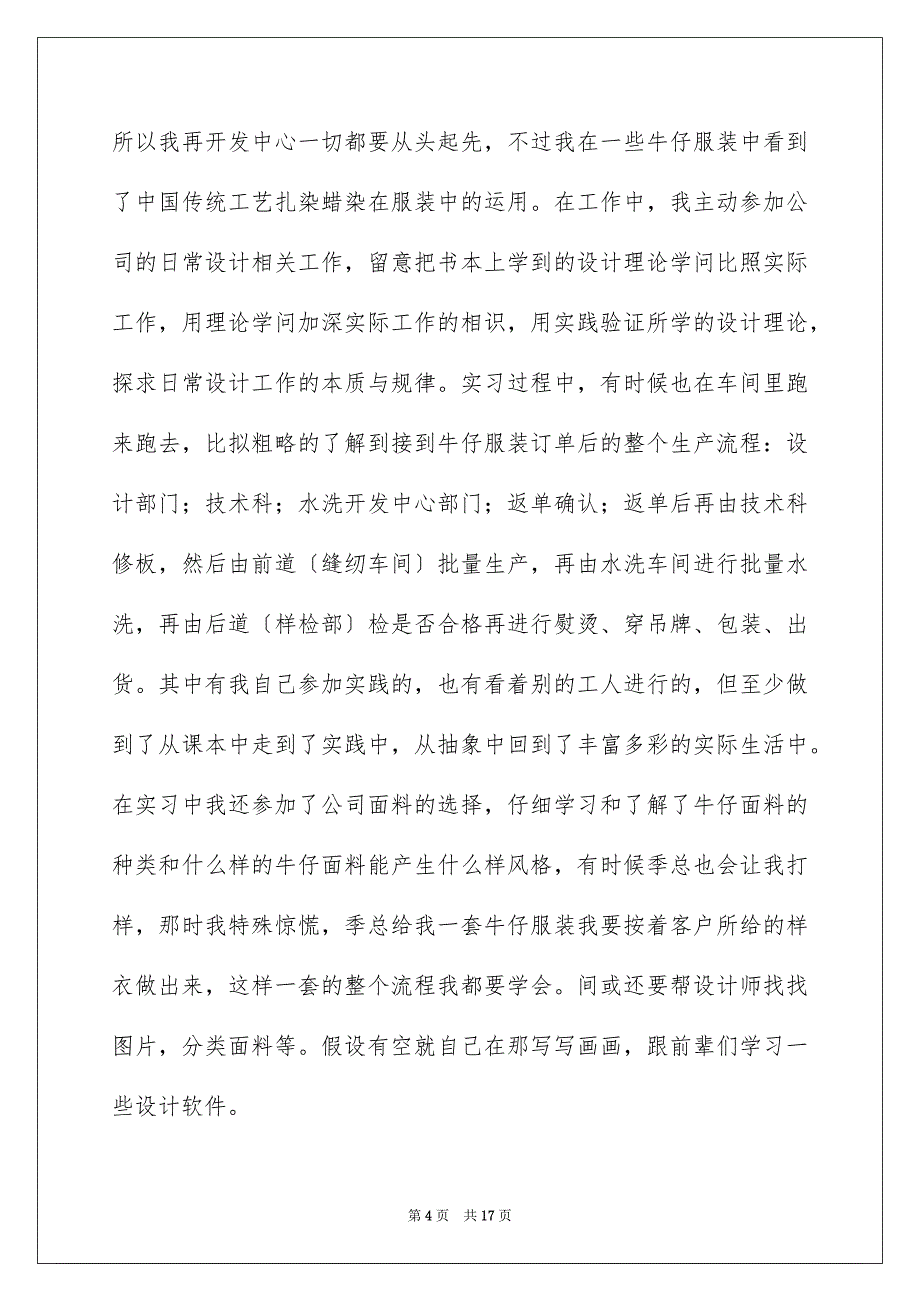 所以我再开发中心一切都要从头起先，不过我在一些牛仔服装中看到
了中国传统工艺扎染蜡染在服装中的运用。在工作中，我主动参加公
司的日常设计相关工作，留意把书本上学到的设计理论学问比照实际
工作，用理论学问加深实际工作的相识，用实践验证所学的设计理论，
探求日常设计工作的本质与规律。实习过程中，有时候也在车间里跑
来跑去，比拟粗略的了解到接到牛仔服装订单后的整个生产流程：设
计部门；技术科；水洗开发中心部门；返单确认；返单后再由技术科
修板，然后由前道〔缝纫车间〕批量生产，再由水洗车间进行批量水
洗，再由后道〔样检部〕检是否合格再进行熨烫、穿吊牌、包装、出
货。其中有我自己参加实践的，也有看着别的工人进行的，但至少做
到了从课本中走到了实践中，从抽象中回到了丰富多彩的实际生活中。
在实习中我还参加了公司面料的选择，仔细学习和了解了牛仔面料的
种类和什么样的牛仔面料能产生什么样风格，有时候季总也会让我打
样，那时我特殊惊慌，季总给我一套牛仔服装我要按着客户所给的样
衣做出来，这样一套的整个流程我都要学会。间或还要帮设计师找找
图片，分类面料等。假设有空就自己在那写写画画，跟前辈们学习一
些设计软件。
第 4 页 共 17 页